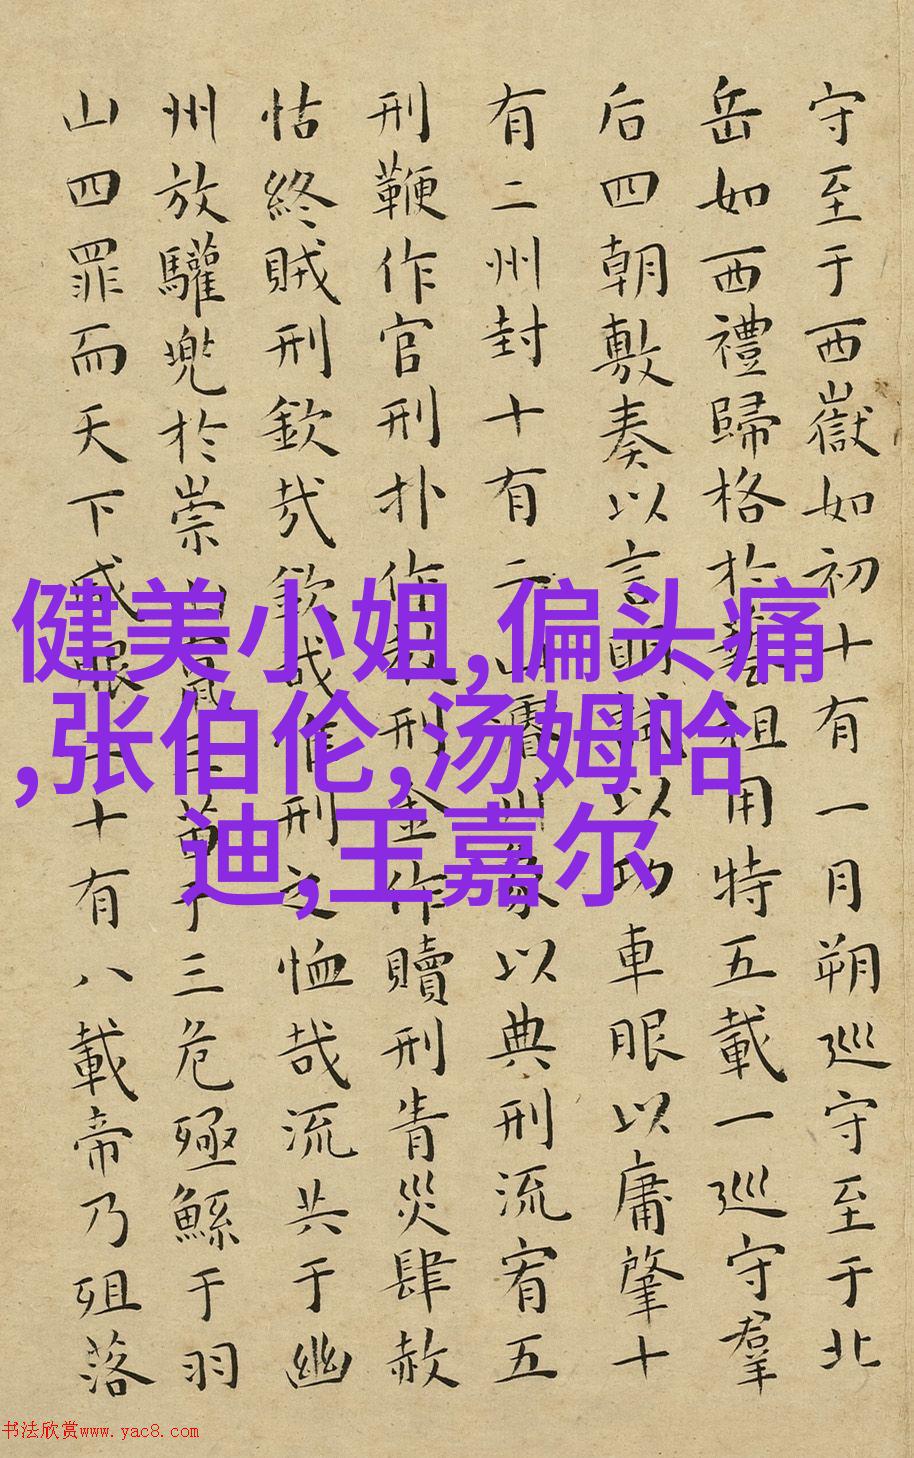 守至于西嶽如初十有一月朔巡守至于北
岳如西禮歸格於藝祖用特五載一巡守羣
后四朝敷奏以言眀試以功車眼以庸肇十
有二州封十有二山濬川象以典刑流宥五
刑鞭作官刑扑作教刑金作贖刑眚災肆赦
怙終賊刑欽哉欽哉惟刑之恤哉流共于幽
州放驩兜於崇山竄三苗于三危殛鯀于羽
山四罪而天下咸眼二十有八載帝乃殂落
健美小姐,偏头痛
,张伯伦,汤姆哈
迪,王嘉尔
书法欣赏www.yac8.com